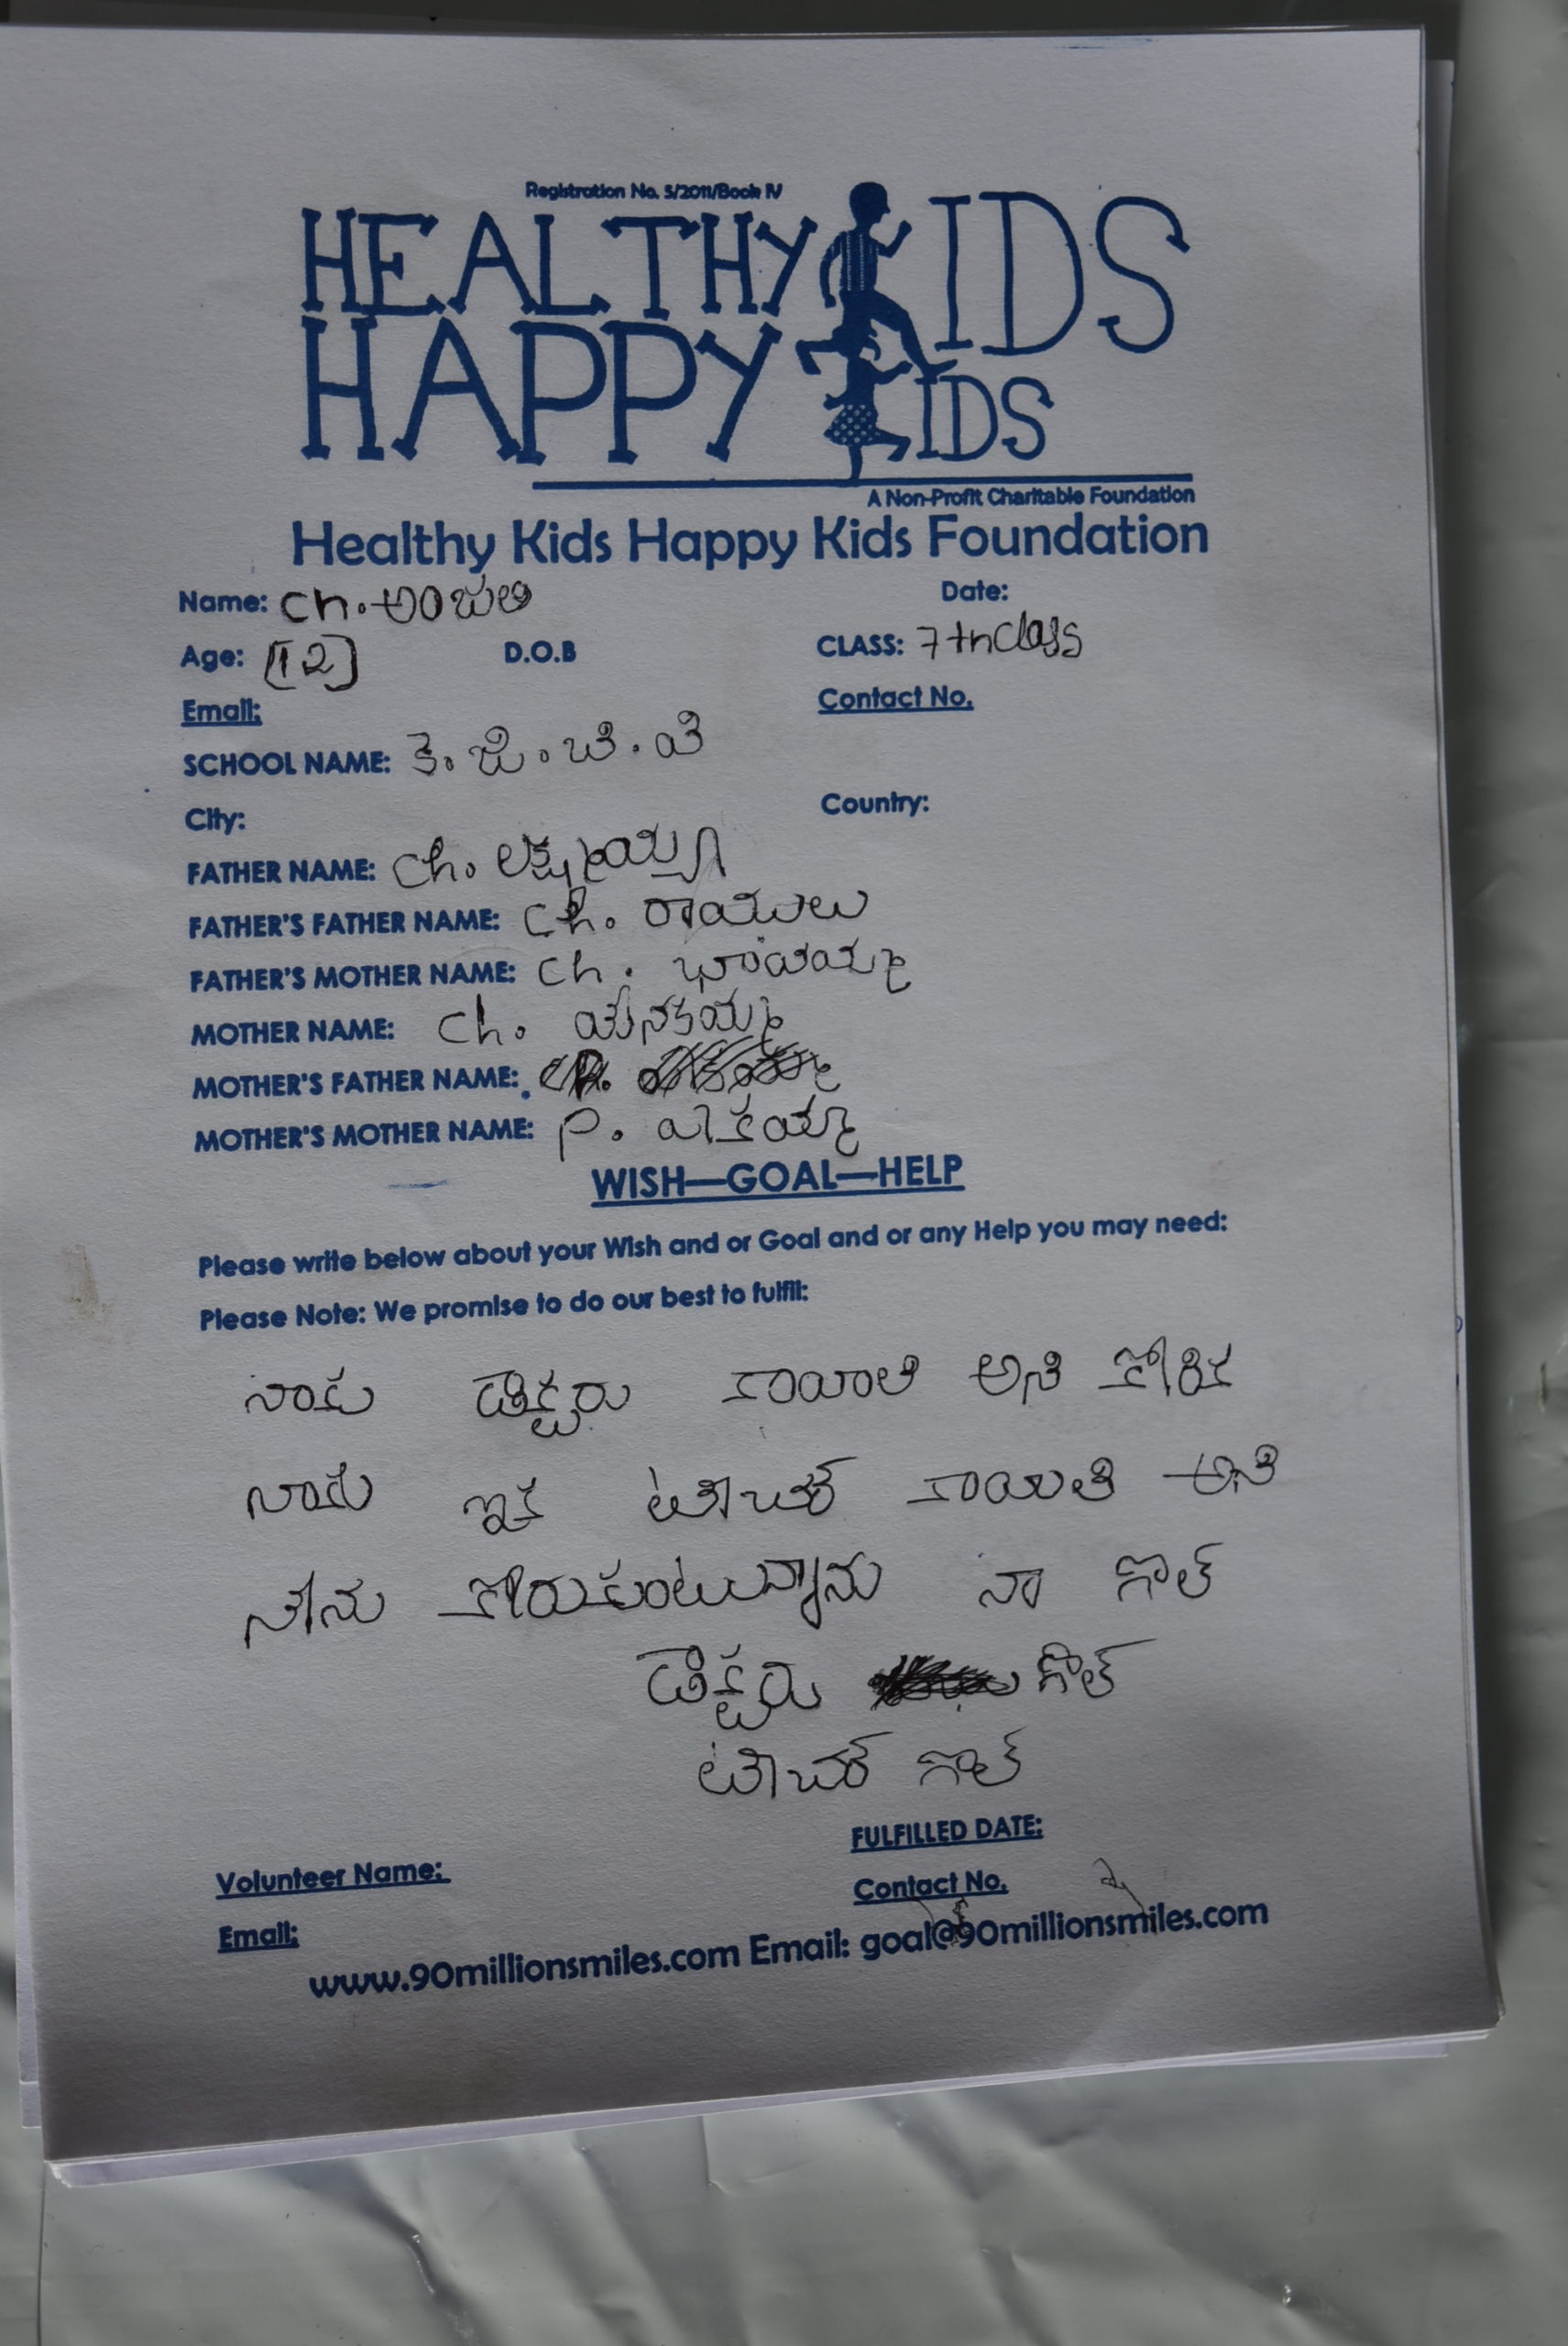 Registration No. 5/2011/Book IV
HEALTHY KIDS
HAPPY KIDS
A Non-Profit Charitable Foundation
Healthy Kids Happy Kids Foundation
Name: Ch. అంజలి
Date:
Age: [12] D.O.B CLASS: 7th Class
Email: Contact No.
SCHOOL NAME: కె. జి. బి. వి
City: Country:
FATHER NAME: Ch.
FATHER'S FATHER NAME: Ch. రాములు
FATHER'S MOTHER NAME: Ch.
MOTHER NAME: Ch.
MOTHER'S FATHER NAME:
MOTHER'S MOTHER NAME: P.
WISH—GOAL—HELP
Please write below about your Wish and or Goal and or any Help you may need:
Please Note: We promise to do our best to fulfil:
నాకు డాక్టరు కావాలి అని కోరిక
నాకు ఇక టీచర్ కావాలి అని
నేను కోరుకుంటున్నాను నా గోల్
డాక్టరు గోల్
టీచర్ గోల్
FULFILLED DATE:
Volunteer Name: Contact No.
Email:
www.90millionsmiles.com Email: goal@90millionsmiles.com